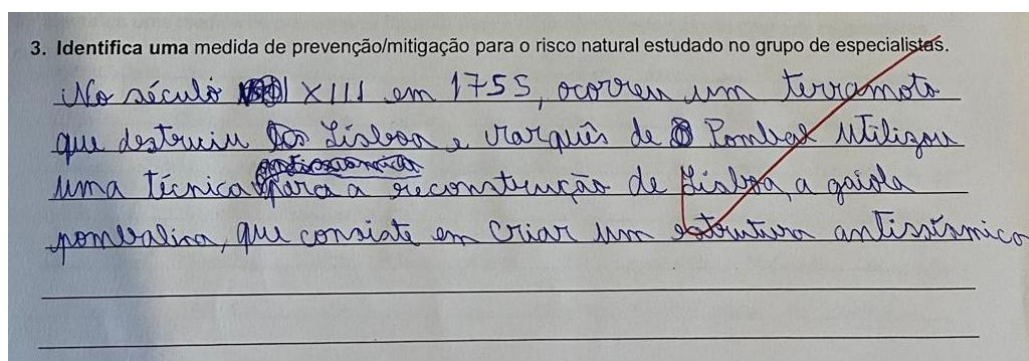 3. Identifica uma medida de prevenção/mitigação para o risco natural estudado no grupo de especialistas.
No século XIII em 1755, ocorreu um terramoto
que destruiu Lisboa e Marquês de Pombal utilizou
antissismica
uma técnica para a reconstrução de Lisboa, a gaiola
pombalina, que consiste em criar um estrutura antissísmica